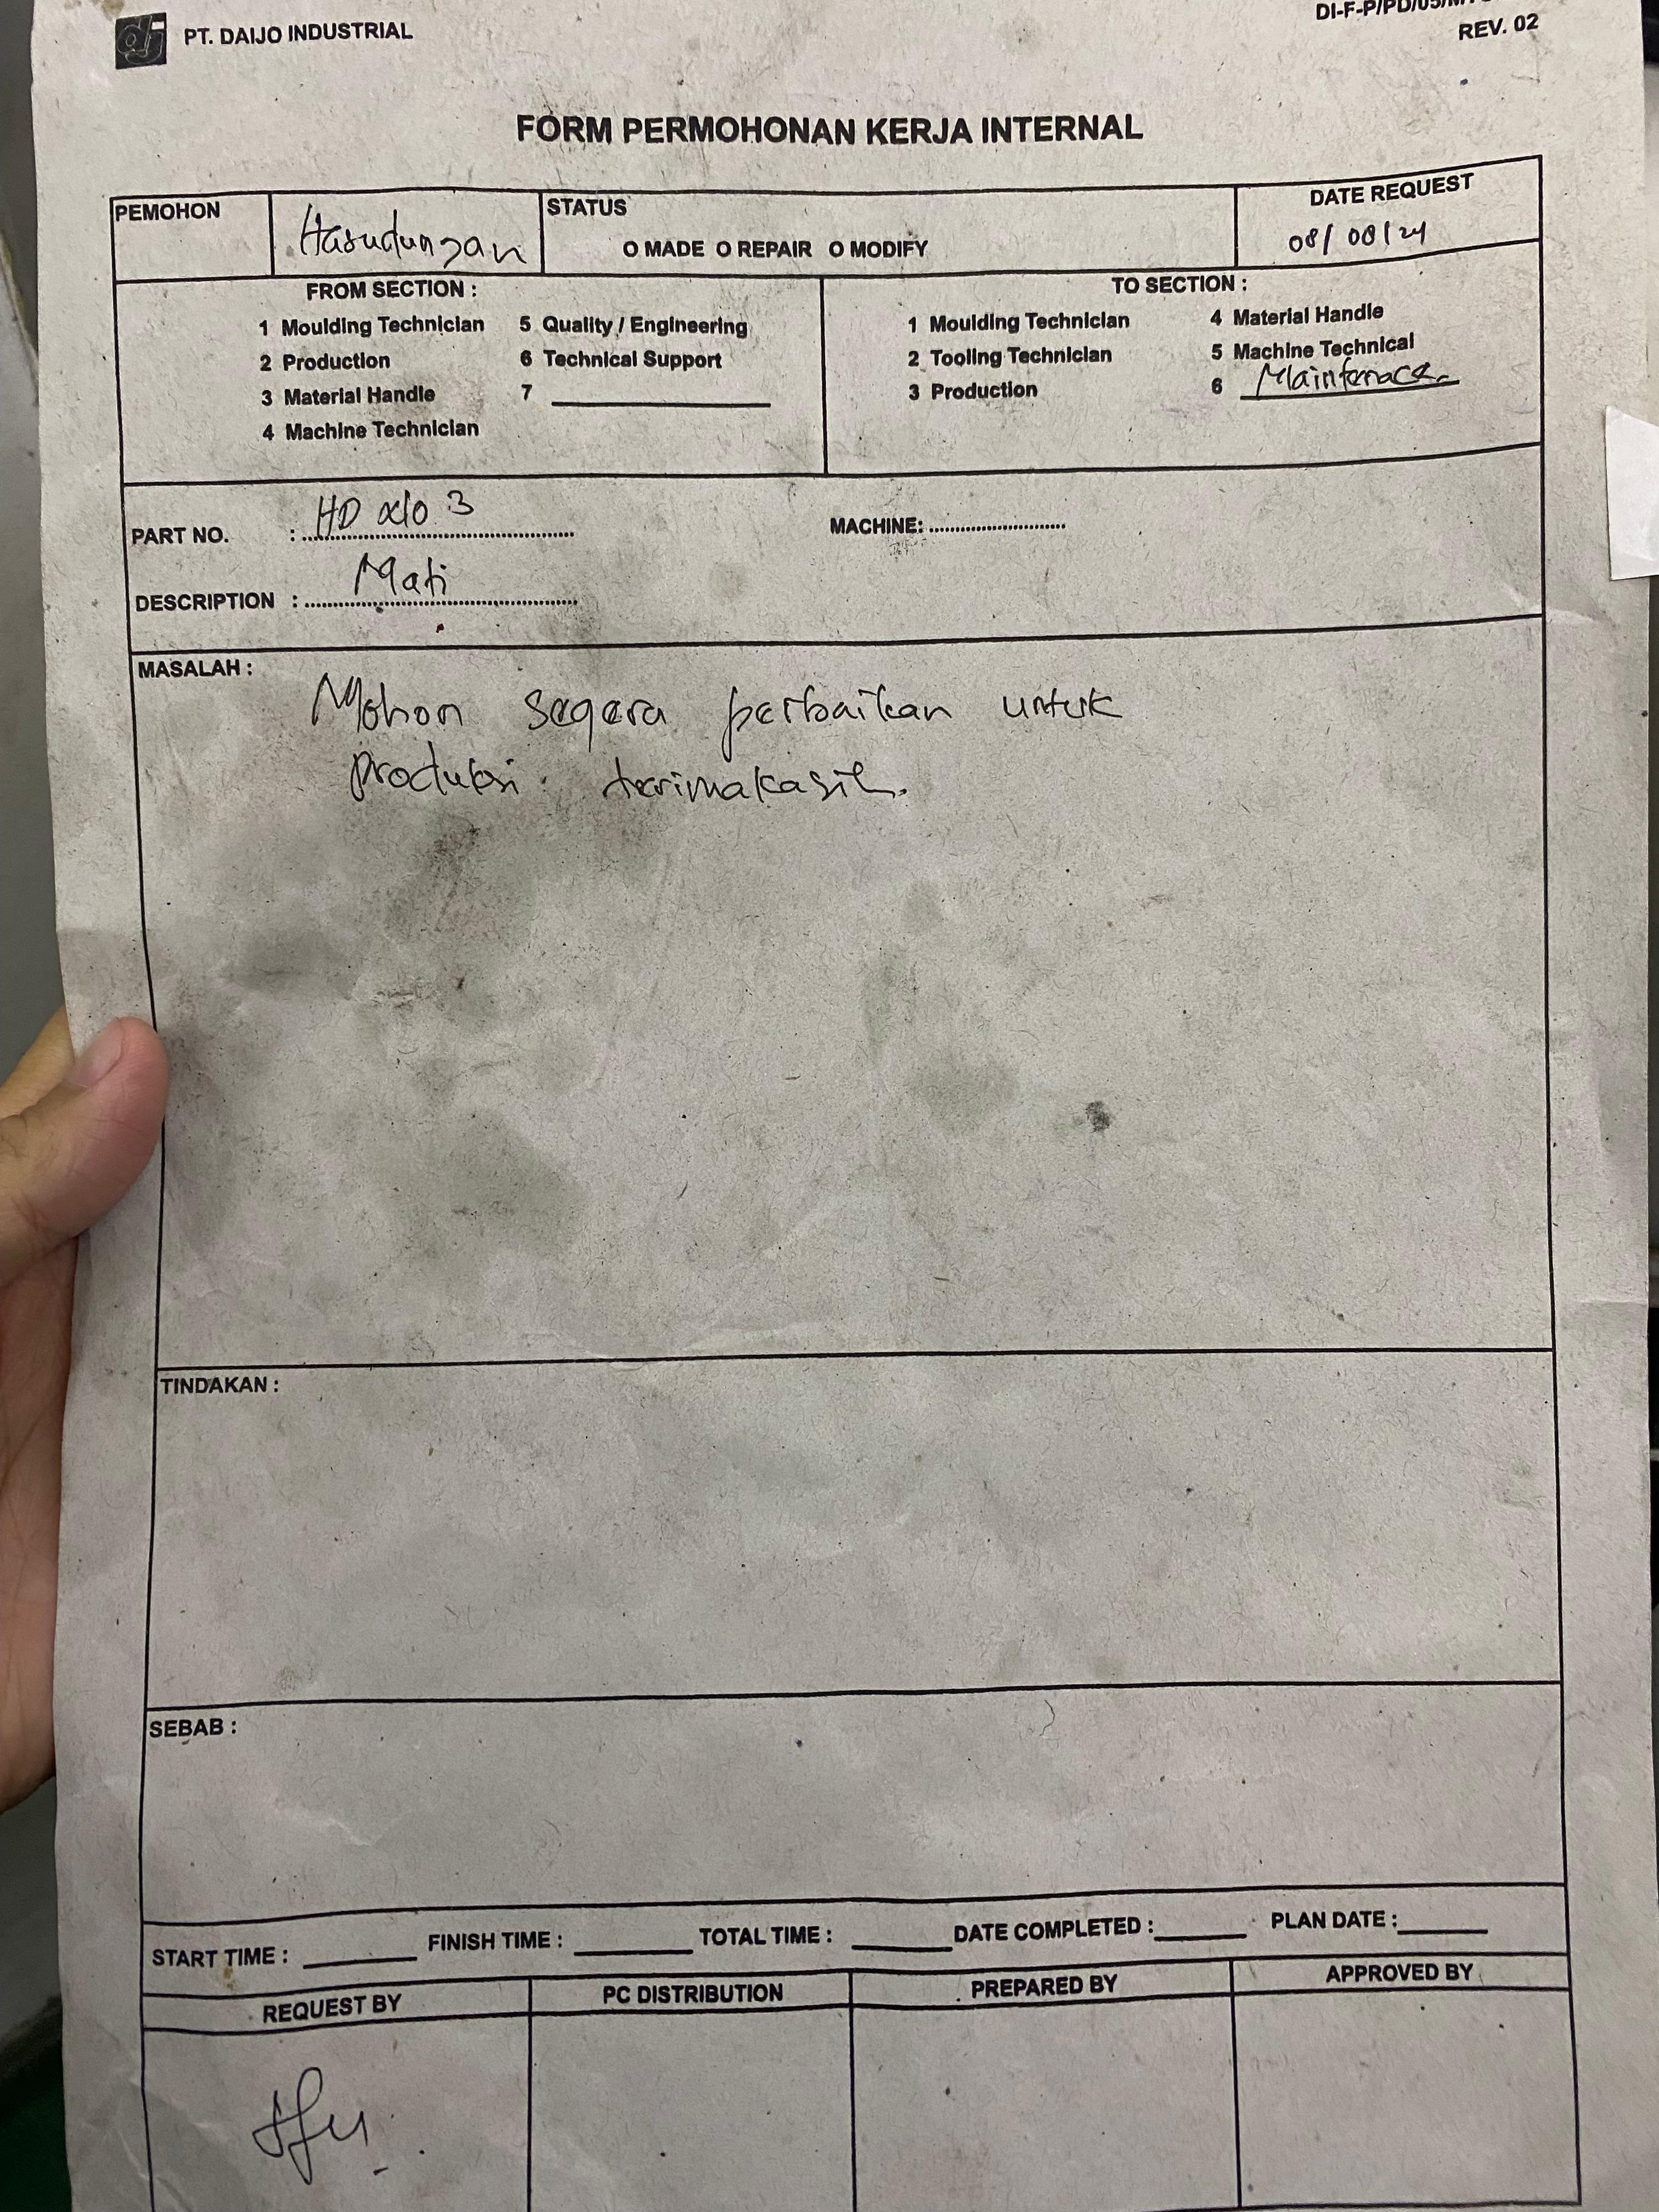 PT. DAIJO INDUSTRIAL
REV. 02
FORM PERMOHONAN KERJA INTERNAL
PEMOHON
Hasudungan
STATUS
O MADE O REPAIR O MODIFY
DATE REQUEST
08/08/24
FROM SECTION :
1 Moulding Technician
2 Production
3 Material Handle
4 Machine Technician
5 Quality / Engineering
6 Technical Support
7
TO SECTION :
1 Moulding Technician
2 Tooling Technician
3 Production
4 Material Handle
5 Machine Technical
6 Maintenace
PART NO. : HD 3
MACHINE:
DESCRIPTION : Mati
MASALAH :
Mohon segera perbaikan untuk
produksi. terimakasih.
TINDAKAN :
SEBAB :
START TIME : FINISH TIME : TOTAL TIME : DATE COMPLETED : PLAN DATE :
REQUEST BY
PC DISTRIBUTION
PREPARED BY
APPROVED BY